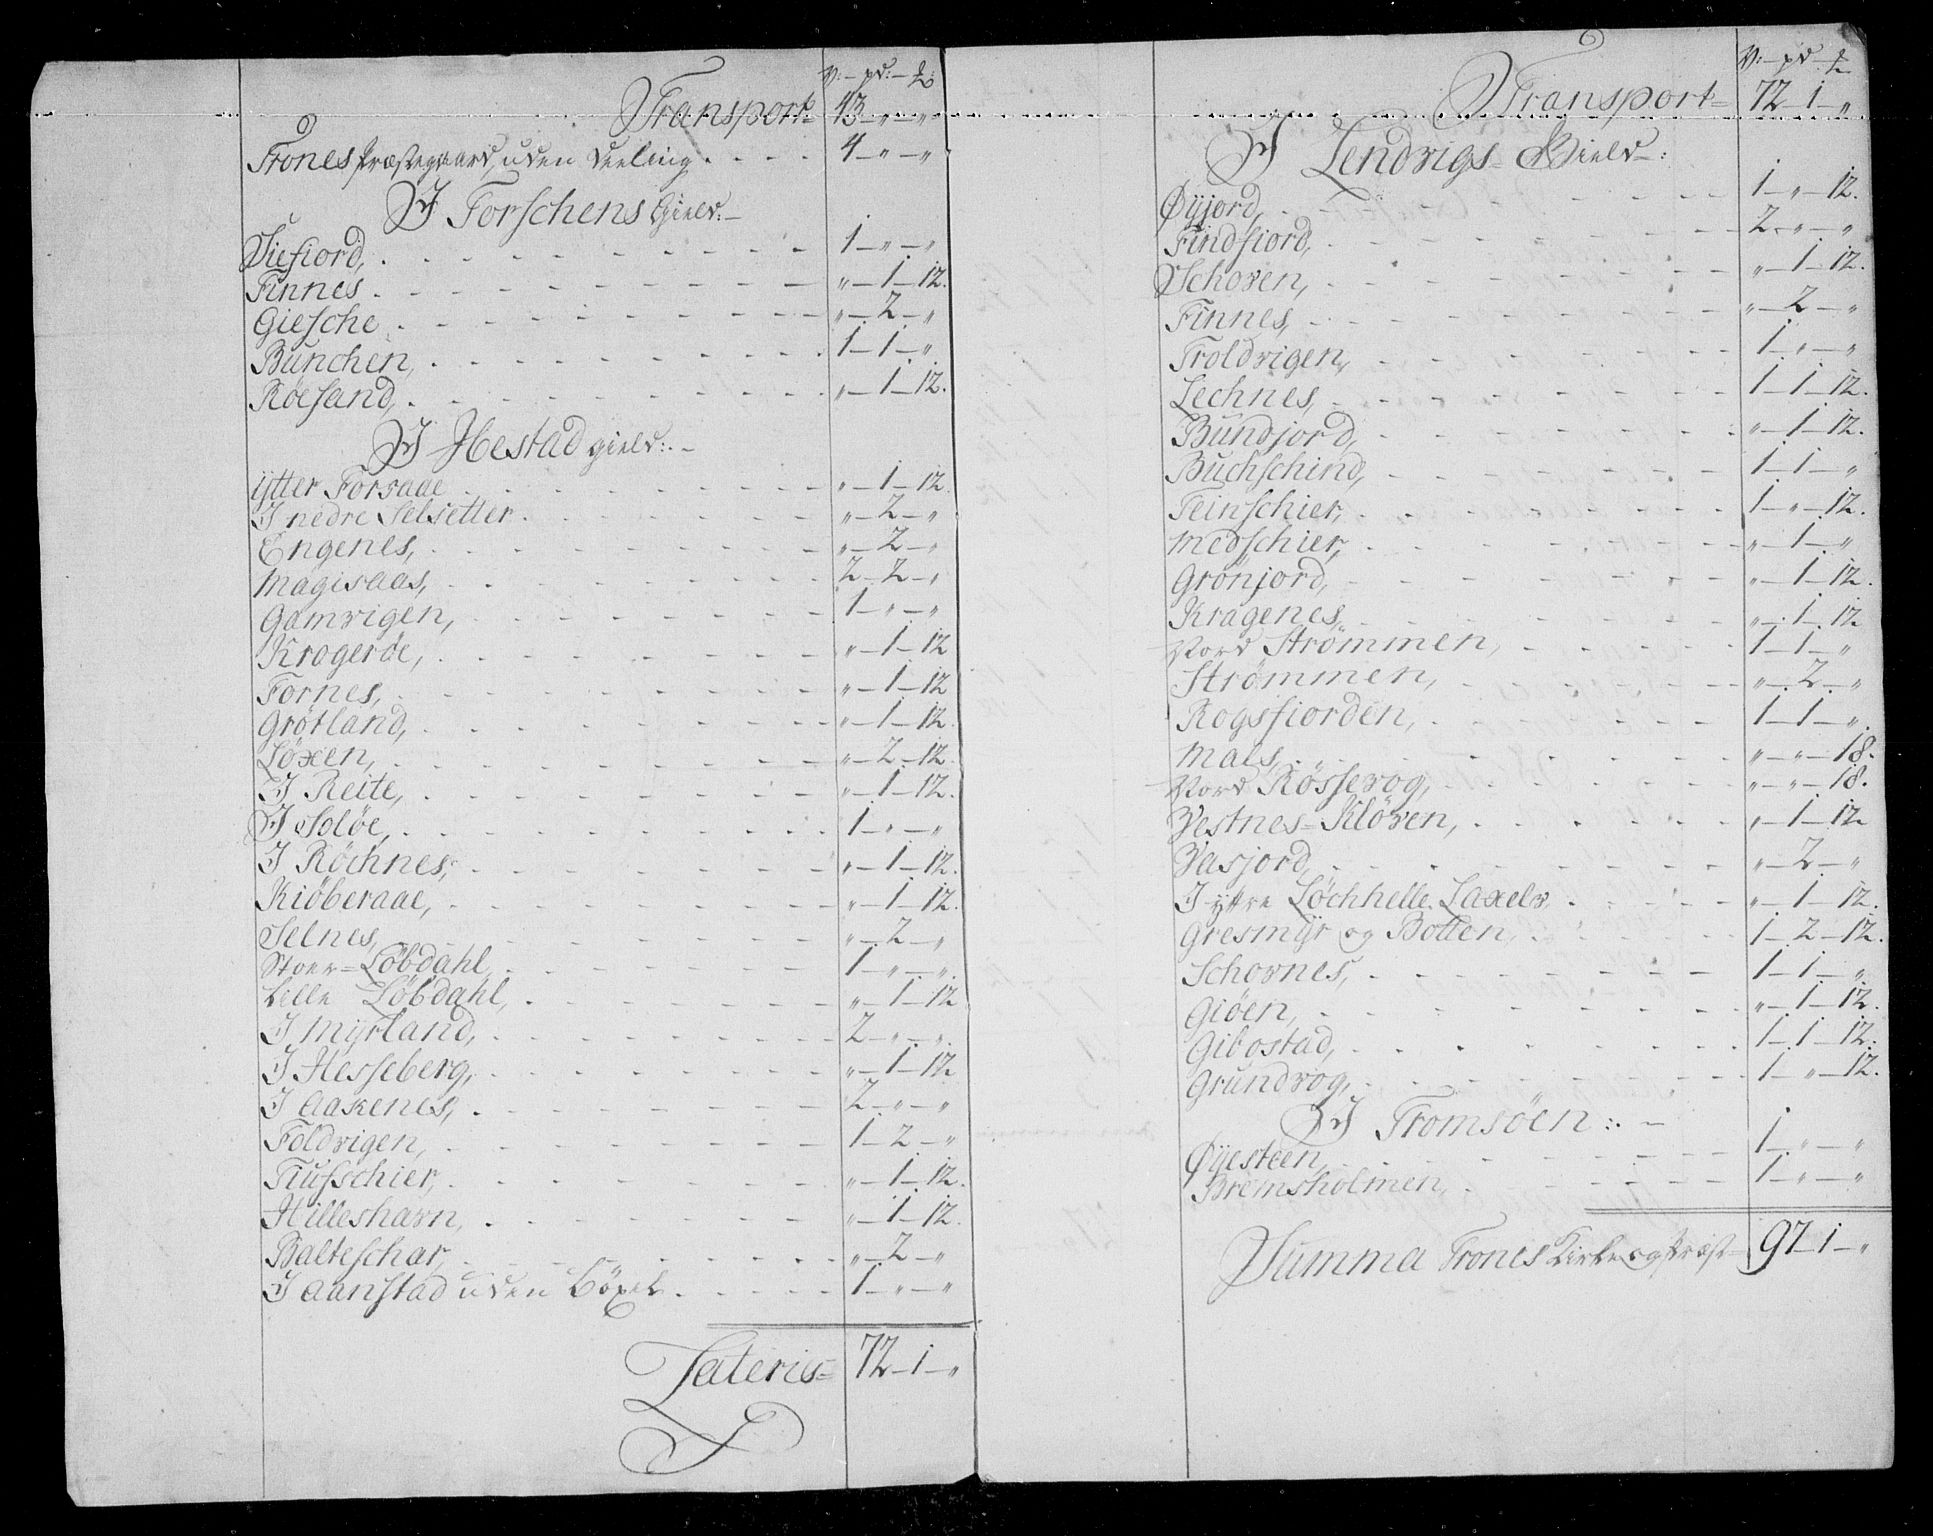 V:–pd:–℔
Transport= 43–"–"
Trones Præstegaard, uden Deeling. 4–"–"
I Torschens Gield:–
Siefiord, 1–"–"
Finnes "–1–12.
Giesche "–2–"
Bunchen, 1–1–"
Røesand, "–1–12.
I Hestad gield:–
ytter Forsaae "–1–12.
I nedre Selsetter. "–2–"
Engenes, "–2–"
Magisaas, 2–2–"
Gamvigen, 1–"–"
Kragerøe, "–1–12
Fornes, "–1–12
Grøtland, "–1–12.
Løxen, "–2–12.
I Reite, "–1–12.
I Soløe, 1–"–"
I Röchnes, "–1–12.
Kiöberaae, "–1–12.
Selnes, "–2–"
Stoer=Løbdahl, 1–"–"
Lille Løbdahl, "–1–12
I Myrland, 2–"–"
I Hesseberg, "–1–12
I Aakenes, 2–"–"
Foldvigen, 1–2–"
Tiufschier, "–1–12.
Hilleshavn, "–1–12.
Balteschar, "–2–"
I Aanstad uden Böxel. 1–"–"
Lateris= 72–1–"
V:–pd–℔
Transport= 72–1–"
I Lendvigs=Gield–:
Øyjord, 1–"–12.
Findfiord, 2–"–"
Schoven, "–1–12.
Finnes, "–2–"
Troldvigen, 1–"–"
Lechnes, 1–1–12.
Bundjord, "–1–12.
Buchschind, 1–1–"
Teinschier, 1–"–12.
Medschier, "–1–"
Grönjord, "–1–12.
Kragenes, "–1–12
Nord Strömmen, 1–1–"
Strømmen, "–2–"
Rogsfiorden, 1–1–"
Mals, "–"–18.
Nord Røssevog, "–"–18.
Vestnes=Kløven, "–1–12
Vasjord, "–2–"
I yttre Løchhelle. Laxelv "–1–12.
Gresmyr og Botten, 1–2–12.
Schovnes, 1–1–"
Giøen, "–1–12.
Gibostad, 1–1–12.
Grundvog, 1–"–12.
I Tromsöen:–
Øyesteen, 1–"–"
Bremsholmen, 1–"–"
Summa Trones Kirke og Præst– 97–1–"